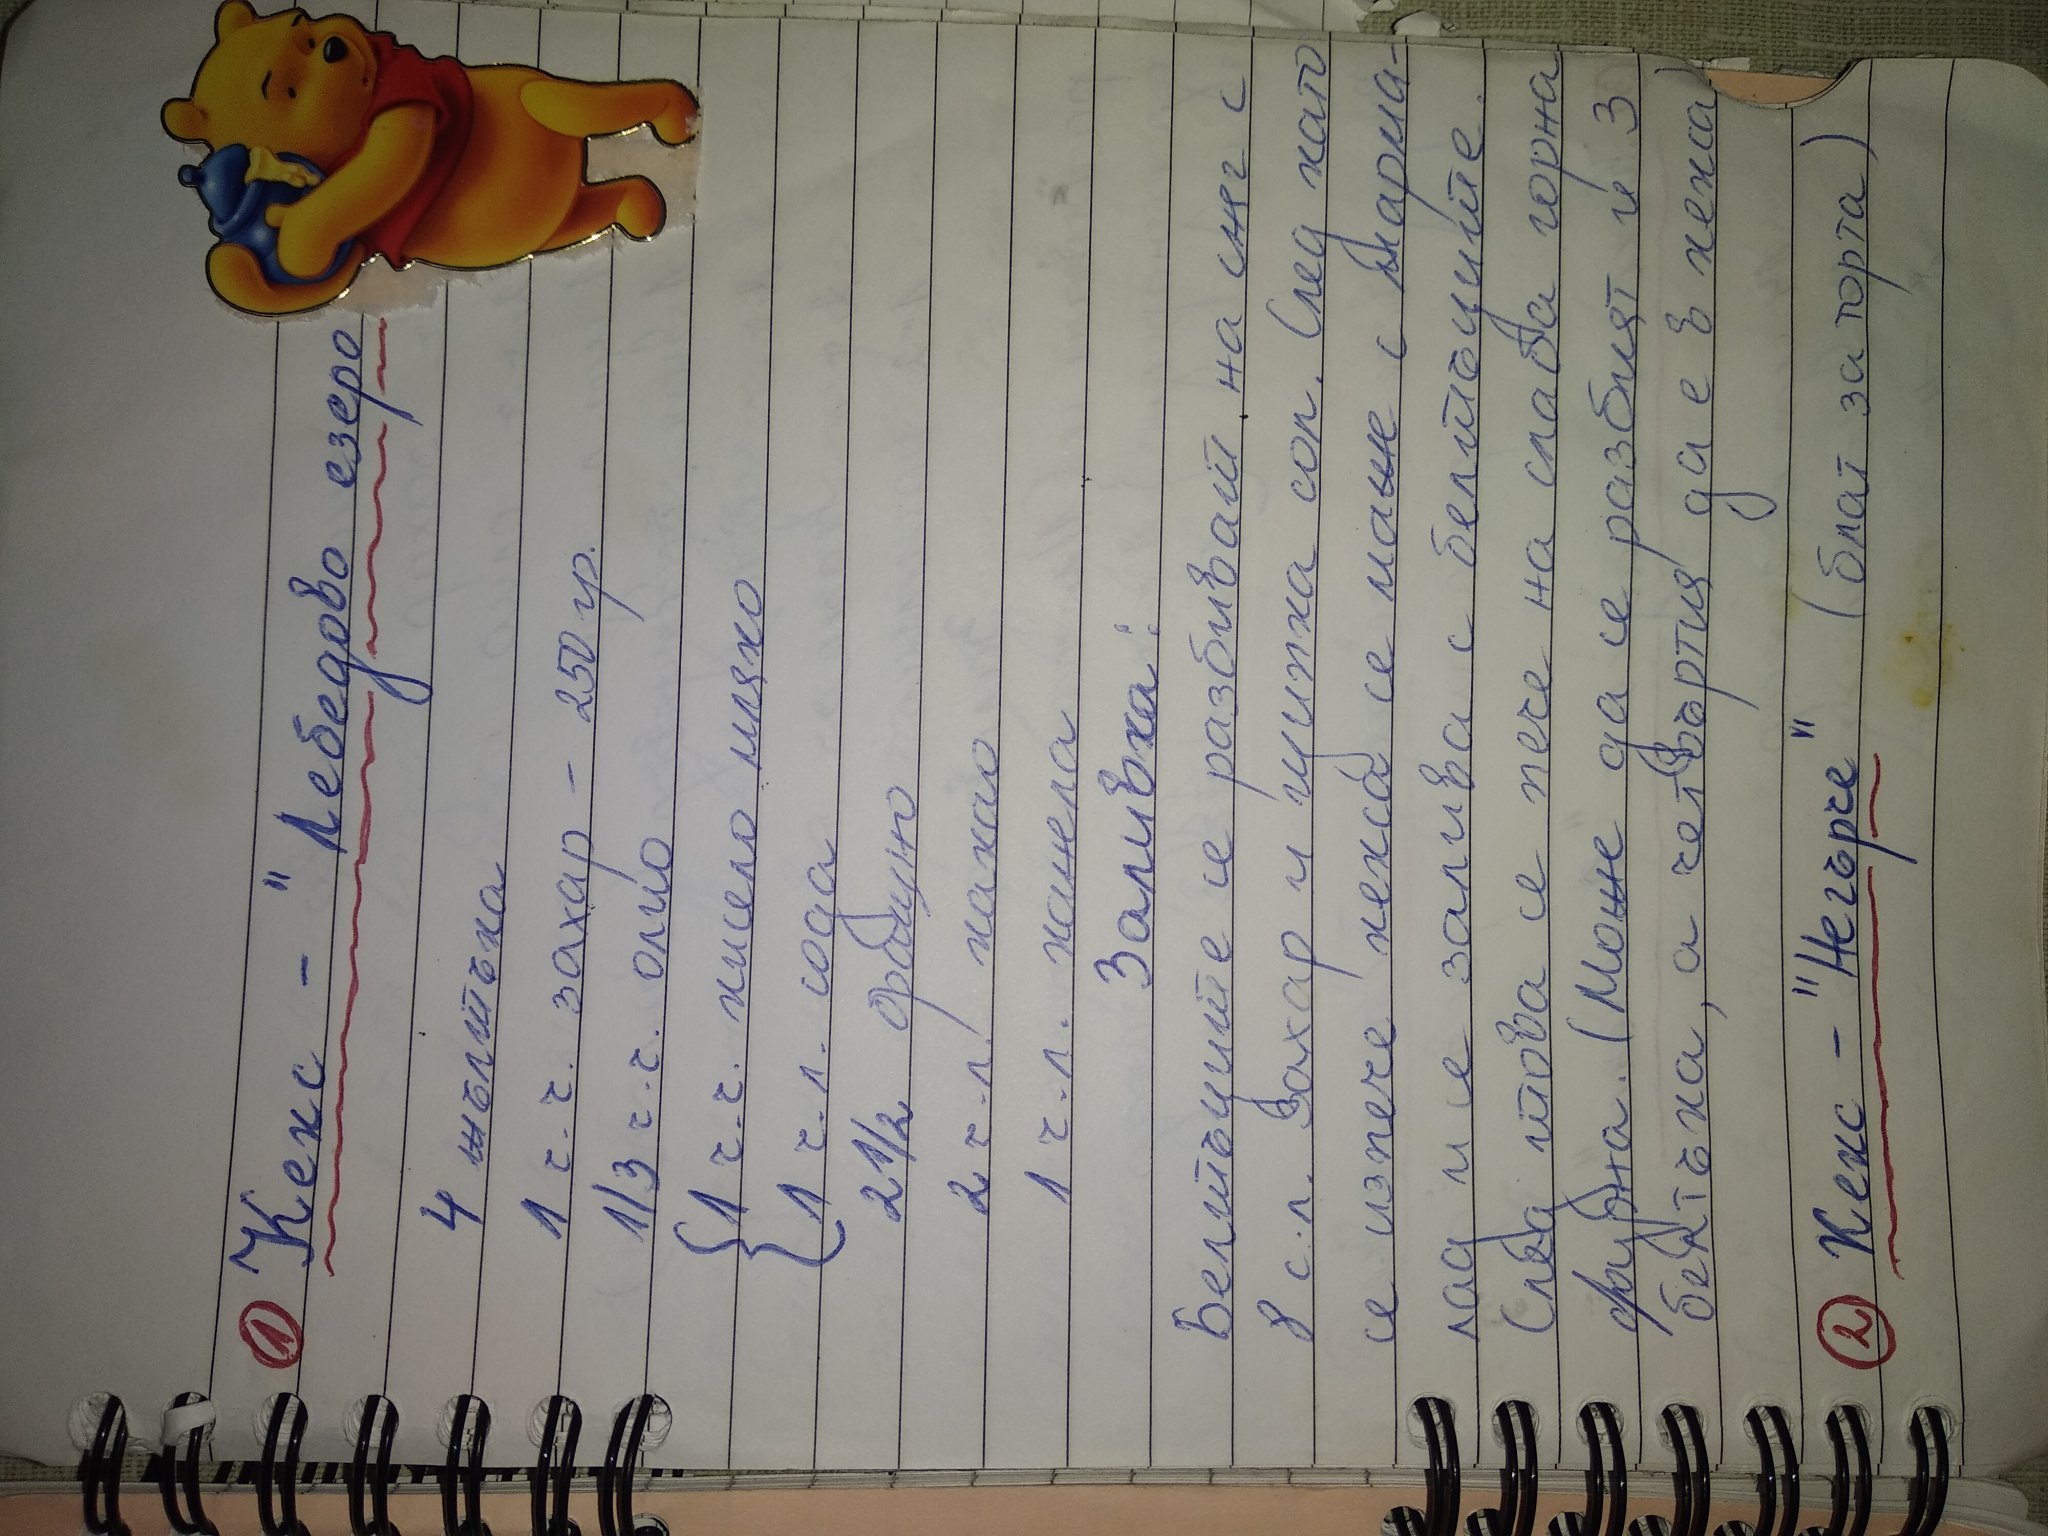 ① Кекс - "Лебедово езеро
4 жълтъка
1 ч.ч. захар - 250 гр.
1/3 ч.ч. олио
{ 1 ч.ч. кисело мляко
{ 1 ч.л. сода
2 1/2 брашно
2 ч.л. какао
1 ч.л. канела
Заливка:
Белтъците се разбиват на сняг с
8 с.л. захар и щипка сол. След като
се изпече кекса се маже с марма-
лад и се залива с белтъците.
След това се пече на слаба горна
фурна. (Може да се разбият и 3
белтъка, а четвъртия да е в кекса)
② Кекс - "Негърче" (блат за торта)